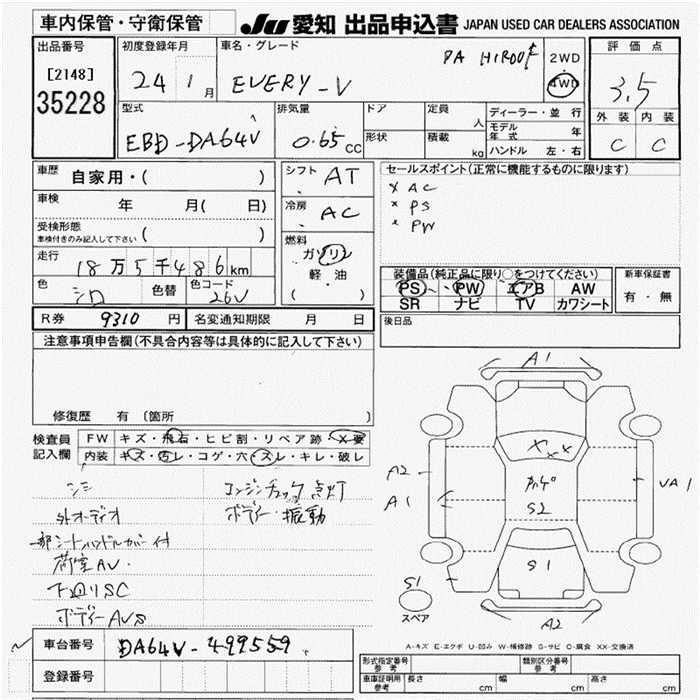 車内保管・守衛保管
JU 愛知 出品申込書 JAPAN USED CAR DEALERS ASSOCIATION
出品番号
[2148]
35228
初度登録年月
24 1月
車名・グレード
EVERY-V
PA HIROOF
2WD
4WD
評価点
3.5
外装 内装
C C
型式
EBD-DA64V
排気量
0.65 CC
ドア
形状
定員 人
積載 kg
ディーラー・並行
モデル年式 年
ハンドル 左・右
車歴
自家用・( )
車検 年 月( 日)
受検形態
車検付きのみ記入して下さい ( )
走行
18万5千486km
色
シロ
色替
色コード
26V
シフト AT
冷房 AC
燃料
ガソリン
軽・油
( )
セールスポイント(正常に機能するものに限ります)
x AC
x PS
x PW
装備品(純正品に限り○をつけてください)
PS PW エアB AW
SR ナビ TV カワシート
新車保証書
有・無
R券 9310 円
名変通知期限 月 日
後日品
注意事項申告欄(不具合内容等は具体的に記入して下さい)
修復歴 有 〔箇所 〕
検査員記入欄
FW キズ・飛石・ヒビ割・リペア跡・X要
内装 キズ・汚レ・コゲ・穴・スレ・キレ・破レ
シミ
外オーディオ
一部シートハンドルカバー付
荷室AV.
下廻りSC
ボディーAVS
エンジンチェック点灯
ボディー振動
A1
A2
A1
S2
S1
VA1
A2
S1
スペア
A-キズ E-エクボ U-凹み W-補修跡 S-サビ C-腐食 XX-交換済
車台番号 DA64V-499559
登録番号
形式指定番号
参考
類別区分番号
参考
車庫証明用
参考
長さ cm 幅 cm 高さ cm